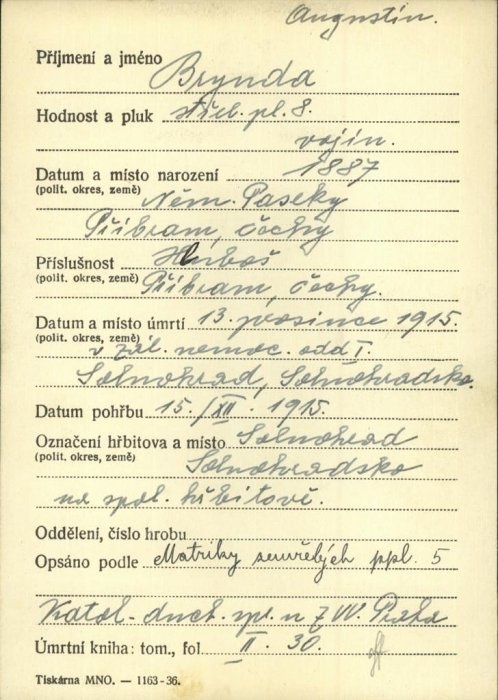 Augustin.
Příjmení a jméno Brynda
Hodnost a pluk střel. pl. 8.
vojín.
Datum a místo narození 1887
(polit. okres, země) Něm. Paseky
Příbram, Čechy
Příslušnost Hluboš
(polit. okres, země) Příbram, Čechy.
Datum a místo úmrtí 13. prosince 1915.
(polit. okres, země) v zál. nemoc. odd I.
Solnohrad, Solnohradsko.
Datum pohřbu 15./XII. 1915.
Označení hřbitova a místo Solnohrad
(polit. okres, země) Solnohradsko
na spol. hřbitově.
Oddělení, číslo hrobu
Opsáno podle Matriky zemřelých ppl. 5
Katol. duch. spr. u ZVV. Praha
Úmrtní kniha: tom., fol II. 30.
Tiskárna MNO. — 1163-36.